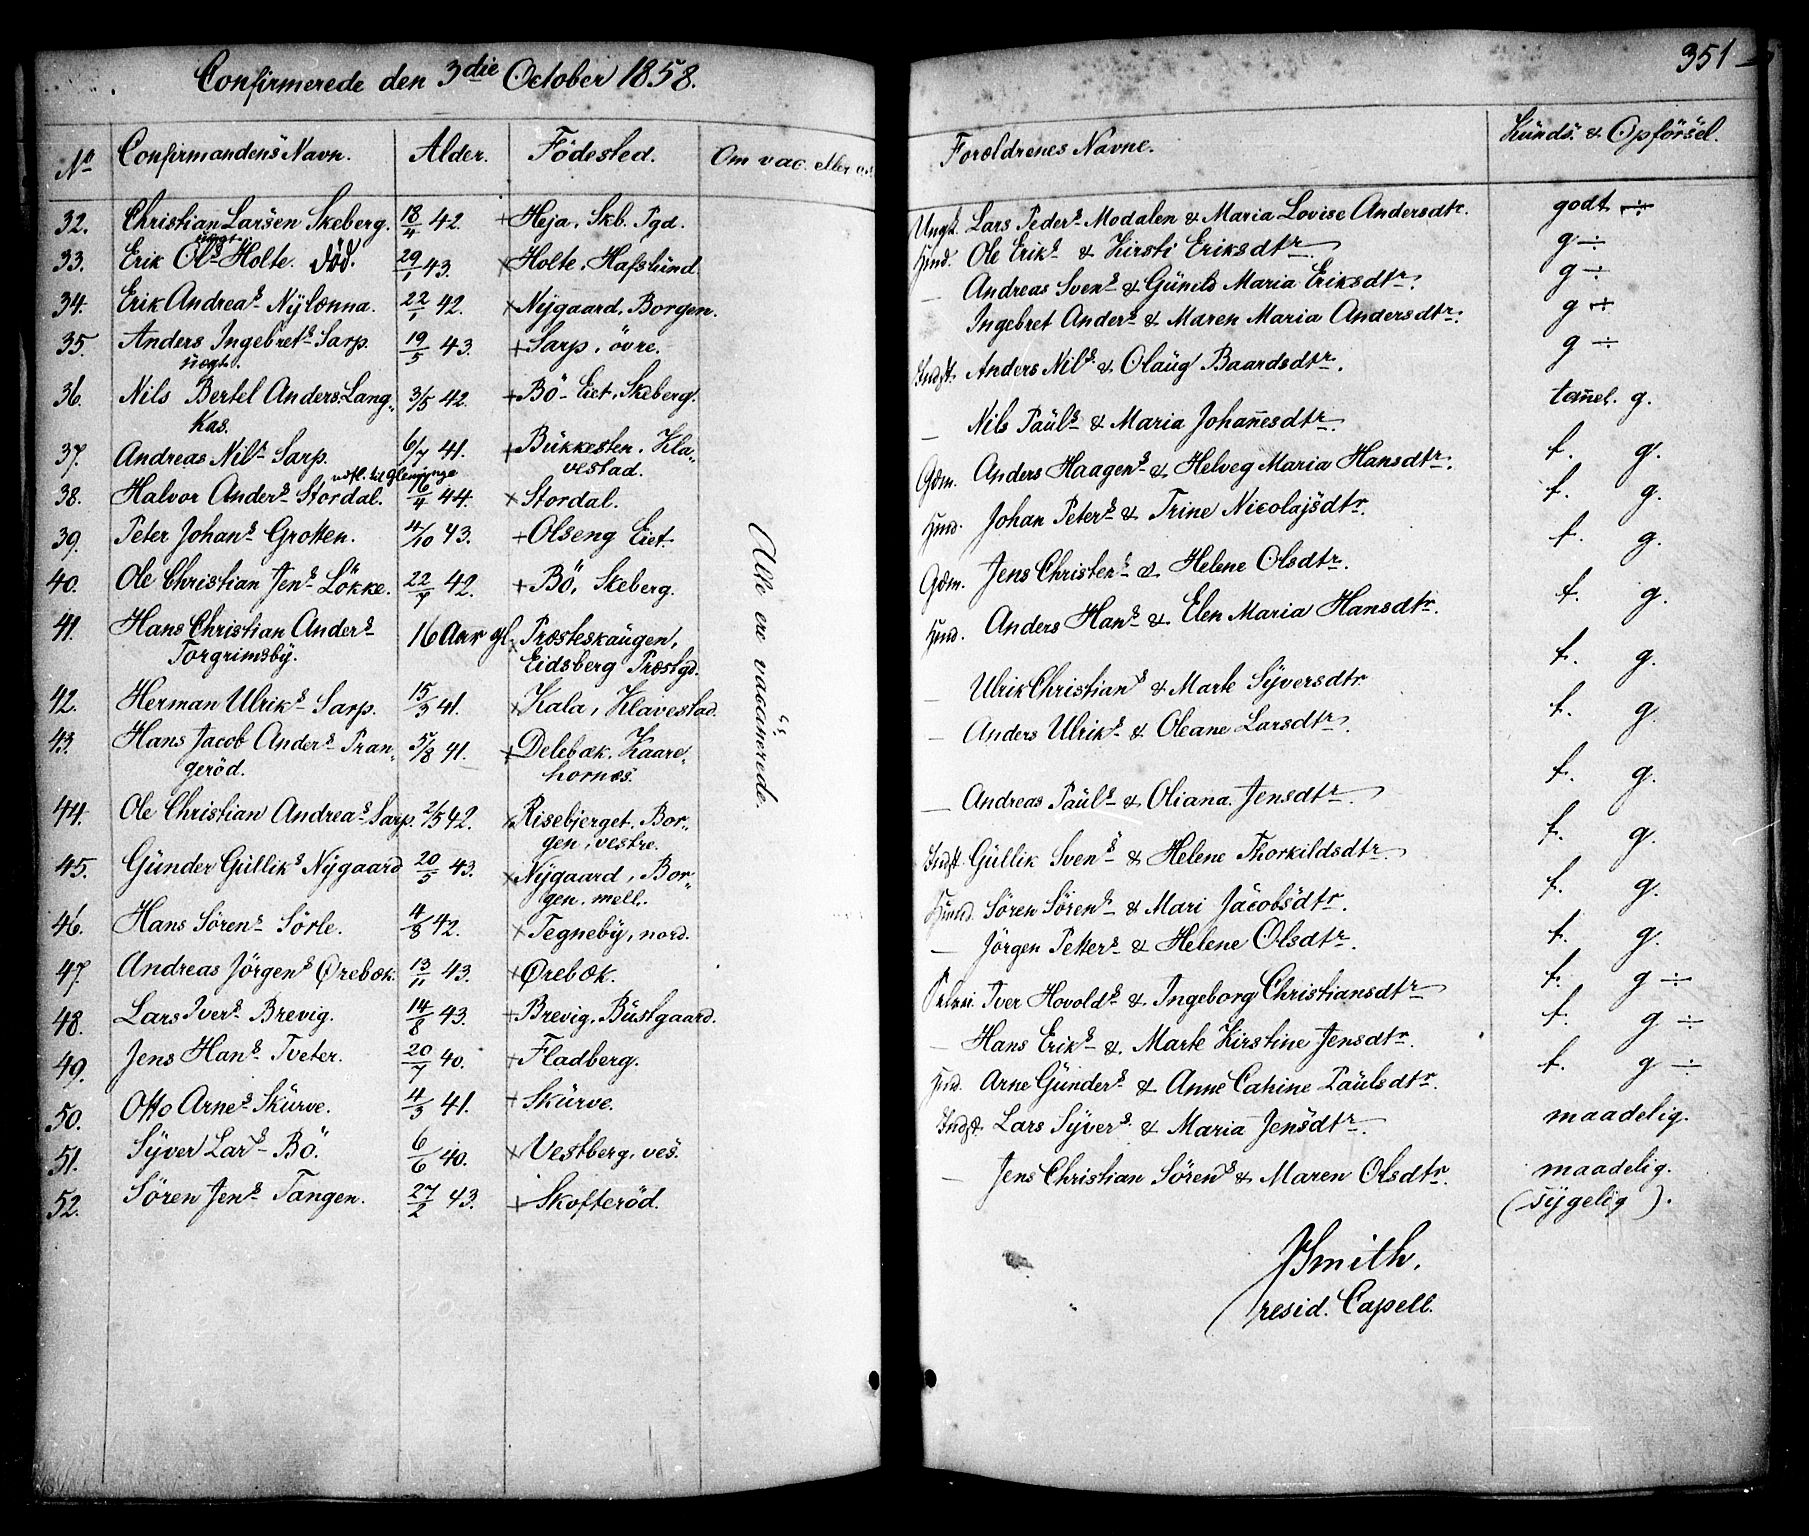 Confirmerede den 3die October 1858.
No Confirmandens Navn. Alder. Födested. Om vac. eller
32. Christian Larsen Skeberg. 18/4 42. + Heja, Skb. Pgd.
33. Erik Ols Holte. död. 29/1 43. × Holte, Hafslund.
34. Erik Andreas Nÿlænna. 22/1 42. × Nÿgaard, Borgen.
35. Anders Ingebrets Sarp. 19/5 43. + Sarp, övre.
36. Nils Bertel Anders. Lang- 3/5 42. + Bö- Eiet, Skeberg.
kas.
37. Andreas Nils Sarp. 6/7 41. + Bükkesten, Kla-
vestad.
utfl. til Glemminge
38. Halvor Anders Stordal. 6/4 44. × Stordal.
39. Peter Johans Grotten. 4/10 43. + Olseng Eiet.
40. Ole Christian Jens Lökke. 22/7 42. + Bö, Skeberg.
41. Hans Christian Anders 16 Aar gl. × Præsteskaügen,
Torgrimsbÿ. Eidsberg Præstgd.
42. Herman Ulriks Sarp. 15/3 41. × Kala, Klavestad.
43. Hans Jacob Anders Pran- 5/8 41. + Delebæk, Kaare-
geröd. hornæs.
44. Ole Christian Andreas Sarp. 2/5 42. × Risebjerget, Bor-
gen, vestre.
45. Günder Gülliks Nÿgaard 20/5 43. × Nÿgaard, Bor-
gen, mell.
46. Hans Sörens Sörle. 4/8 42. × Tegnebÿ, nord.
47. Andreas Jörgens Ørebæk. 13/11 43. + Ørebæk.
48. Lars Ivers Brevig. 14/8 43. + Brevig, Büstgaard.
49. Jens Hans Tveter. 20/7 40. + Fladberg.
50. Otto Arnes Skürve. 4/3 41. + Skürve.
51. Sÿver Lars Bö. 6/6 40. × Vestberg, ves.
52. Sören Jens Tangen. 27/2 43. + Skofteröd.
Alle ere vaccinerede.
351
Forældrenes Navne. Kunds. & Opförsel.
Ungk. Lars Peders Modalen & Maria Lovise Andersdtr. godt ÷
Hmd. Ole Eriks & Kirsti Eriksdtr. g ÷
— Andreas Svens & Günild Maria Eriksdtr. g ÷
Ingebret Anders & Maren Maria Andersdtr. g ÷
Indst. Anders Nils & Olaüg Baardsdtr. g ÷
— Nils Paüls & Maria Johannesdtr. tammel. g.
Gdm. Anders Haagens & Helveg Maria Hansdtr. t. g.
Hmd. Johan Peters & Trine Nicolajsdtr. t. g.
Gdm. Jens Christens & Helene Olsdtr. t. g.
Hmd. Anders Hans & Elen Maria Hansdtr. t. g.
— Ulrik Christians & Marte Sÿversdtr. t. g.
— Anders Ulriks & Oleane Larsdtr. t. g.
— Andreas Paüls & Oliana Jensdtr. t. g.
Indst. Güllik Svens & Helene Thorkildsdtr. t. g.
Hmnd. Sören Sörens & Mari Jacobsdtr. t. g.
— Jörgen Petters & Helene Olsdtr. t. g.
Iver Hovolds & Ingeborg Christiansdtr. t. g ÷
— Hans Eriks & Marte Kirstine Jensdtr. t. g ÷
Hmd. Arne Günders & Anne Cahine Paülsdtr. t. g ÷
Indst. Lars Sÿvers & Maria Jensdtr. maadelig.
— Jens Christian Sörens & Maren Olsdtr. maadelig.
(sÿgelig).
JSmith.
resid. Capell.